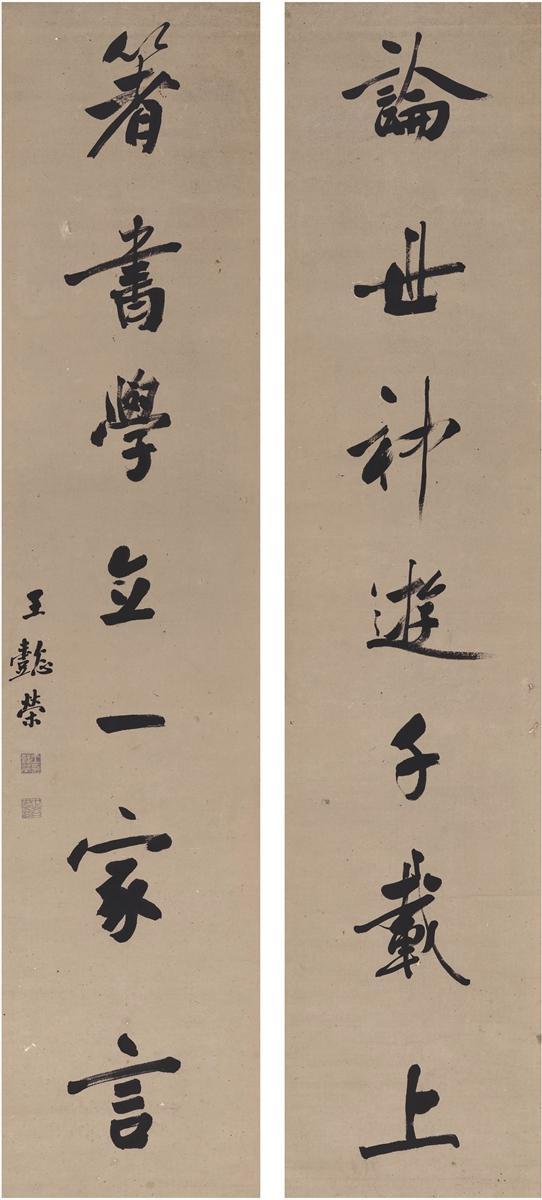 論世神遊千載上
箸書學立一家言
王懿榮